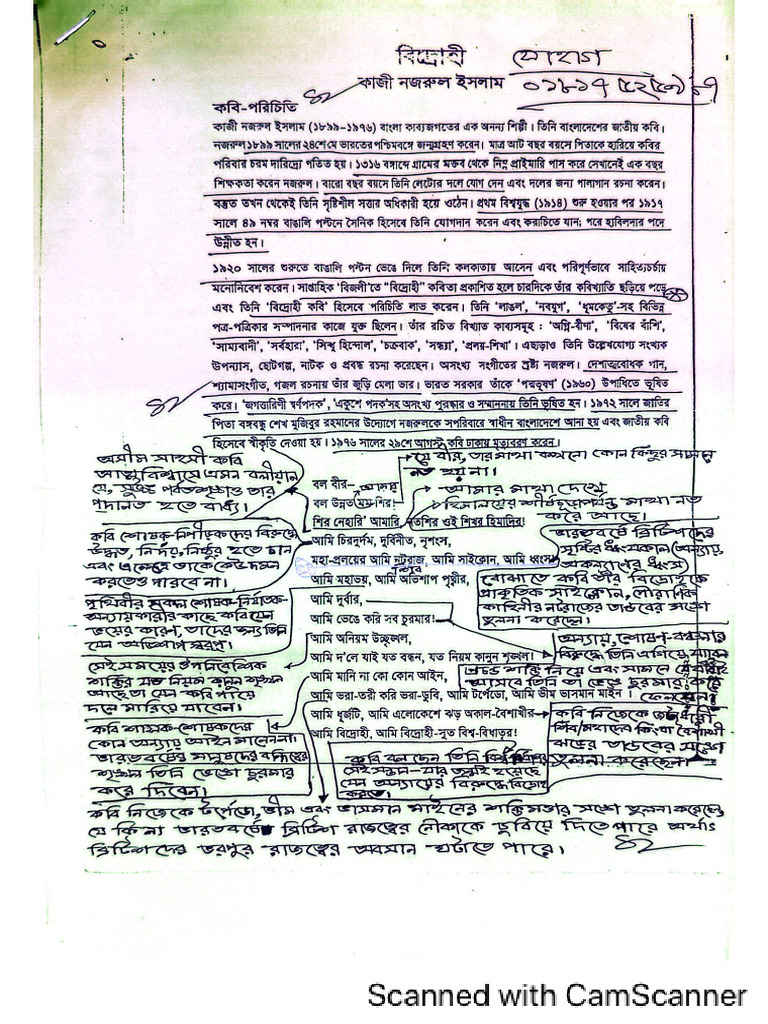 বিদ্রোহী
সোহাগ
কাজী নজরুল ইসলাম
কবি-পরিচিতি
কাজী নজরুল ইসলাম (১৮৯৯–১৯৭৬) বাংলা কাব্যজগতের এক অনন্য শিল্পী। তিনি বাংলাদেশের জাতীয় কবি।
নজরুল ১৮৯৯ সালের ২৪শে মে ভারতের পশ্চিমবঙ্গে জন্মগ্রহণ করেন। মাত্র আট বছর বয়সে পিতাকে হারিয়ে কবির
পরিবার চরম দারিদ্র্যে পতিত হয়। ১৩১৬ বঙ্গাব্দে গ্রামের মক্তব থেকে নিম্ন প্রাইমারি পাস করে সেখানেই এক বছর
শিক্ষকতা করেন নজরুল। বারো বছর বয়সে তিনি লেটোর দলে যোগ দেন এবং দলের জন্য পালাগান রচনা করেন।
বস্তুত তখন থেকেই তিনি সৃষ্টিশীল সত্তার অধিকারী হয়ে ওঠেন। প্রথম বিশ্বযুদ্ধ (১৯১৪) শুরু হওয়ার পর ১৯১৭
সালে ৪৯ নম্বর বাঙালি পল্টনে সৈনিক হিসেবে তিনি যোগদান করেন এবং করাচিতে যান; পরে হাবিলদার পদে
উন্নীত হন।
১৯২০ সালের শুরুতে বাঙালি পল্টন ভেঙে দিলে তিনি কলকাতায় আসেন এবং পরিপূর্ণভাবে সাহিত্যচর্চায়
মনোনিবেশ করেন। সাপ্তাহিক ‘বিজলী’তে “বিদ্রোহী” কবিতা প্রকাশিত হলে চারদিকে তাঁর কবিখ্যাতি ছড়িয়ে পড়ে
এবং তিনি ‘বিদ্রোহী কবি’ হিসেবে পরিচিতি লাভ করেন। তিনি ‘লাঙল’, ‘নবযুগ’, ‘ধূমকেতু’-সহ বিভিন্ন
পত্র-পত্রিকার সম্পাদনার কাজে যুক্ত ছিলেন। তাঁর রচিত বিখ্যাত কাব্যসমূহ : ‘অগ্নি-বীণা’, ‘বিষের বাঁশি’,
‘সাম্যবাদী’, ‘সর্বহারা’, ‘সিন্ধু হিন্দোল’, ‘চক্রবাক’, ‘সন্ধ্যা’, ‘প্রলয়-শিখা’। এছাড়াও তিনি উল্লেখযোগ্য সংখ্যক
উপন্যাস, ছোটগল্প, নাটক ও প্রবন্ধ রচনা করেছেন। অসংখ্য সংগীতের স্রষ্টা নজরুল। দেশাত্মবোধক গান,
শ্যামাসংগীত, গজল রচনায় তাঁর জুড়ি মেলা ভার। ভারত সরকার তাঁকে ‘পদ্মভূষণ’ (১৯৬০) উপাধিতে ভূষিত
করে। ‘জগত্তারিণী স্বর্ণপদক’, ‘একুশে পদক’সহ অসংখ্য পুরস্কার ও সম্মাননায় তিনি ভূষিত হন। ১৯৭২ সালে জাতির
পিতা বঙ্গবন্ধু শেখ মুজিবুর রহমানের উদ্যোগে নজরুলকে সপরিবারে স্বাধীন বাংলাদেশে আনা হয় এবং জাতীয় কবি
হিসেবে স্বীকৃতি দেওয়া হয়। ১৯৭৬ সালের ২৯শে আগস্ট কবি ঢাকায় মৃত্যুবরণ করেন।
অসীম সাহসী কবি
আত্মবিশ্বাসে এমন বলীয়ান
যে, পর্বতশৃঙ্গও তার
পদানত হতে বাধ্য।
যে বীর, তার মাথা কখনো কোন কিছুর সামনে
নত হয় না।
বল বীর–
বল উন্নত মম শির!
আমার মাথা দেখে
হিমালয়ের মাথা নত
করে আছে।
শির নেহারি’ আমারি, নতশির ওই শিখর হিমাদ্রির!
আমি চিরদুর্দম, দুর্বিনীত, নৃশংস,
মহা-প্রলয়ের আমি নটরাজ, আমি সাইক্লোন, আমি ধ্বংস!
আমি মহাভয়, আমি অভিশাপ পৃথ্বীর,
আমি দুর্বার,
আমি ভেঙে করি সব চুরমার!
আমি অনিয়ম উচ্ছৃঙ্খল,
আমি দ’লে যাই যত বন্ধন, যত নিয়ম কানুন শৃঙ্খল!
আমি মানি না কো কোন আইন,
আমি ভরা-তরী করি ভরা-ডুবি, আমি টর্পেডো, আমি ভীম ভাসমান মাইন।
আমি ধূর্জটি, আমি এলোকেশে ঝড় অকাল-বৈশাখীর
আমি বিদ্রোহী, আমি বিদ্রোহী-সুত বিশ্ব-বিধাতৃর!
কবি শোষক-নিপীড়কদের বিরুদ্ধে
উদ্ধত, নির্দয়, নিষ্ঠুর হতে চান
এবং এক্ষেত্রে তাকে কেউ দমন
করতেও পারবে না।
পৃথিবীর সকল শোষক-নির্যাতক-
অন্যায়কারীর কাছে কবি যেন
ভয়ের কারণ, তাদের জন্য তিনি
যেন অভিশাপ স্বরূপ।
সেই সময়ের ঔপনিবেশিক
শক্তির যত নিয়ম কানুন শৃঙ্খল
আছে তা যেন কবি পায়ে
দলে মাড়িয়ে যাবেন।
কবি শাসক-শোষকদের
কোন অন্যায় আইন মানেন না।
ভারতবর্ষের
শৃঙ্খল তিনি ভেঙ্গে চুরমার
করে দিবেন।
ভারতবর্ষে ব্রিটিশদের
বোঝাতে কবি তাঁর বিদ্রোহকে
প্রাকৃতিক সাইক্লোন, পৌরাণিক
কাহিনীর নটরাজের তাণ্ডবের সঙ্গে
তুলনা করেছেন।
অন্যায়, শোষণ-বঞ্চনার
বিরুদ্ধে তিনি এগিয়ে যাবেন
প্রচন্ড শক্তি নিয়ে এবং সামনে যে বাধাই
আসবে তিনি তা ভেঙ্গে চুরমার করে
ফেলবেন।
কবি নিজেকে জটাধারী
শিব/মহাদেব কিংবা বৈশাখী
ঝড়ের তাণ্ডবের সঙ্গে
তুলনা করেছেন।
কবি নিজেকে টর্পেডো, ভীম এবং ভাসমান মাইনের শক্তিমত্তার সঙ্গে তুলনা করেছেন,
যে কিনা ভারতবর্ষে ব্রিটিশ রাজত্বের নৌকাকে ডুবিয়ে দিতে পারে অর্থাৎ
ব্রিটিশদের ভরপুর রাজত্বের অবসান ঘটাতে পারে।
Scanned with CamScanner